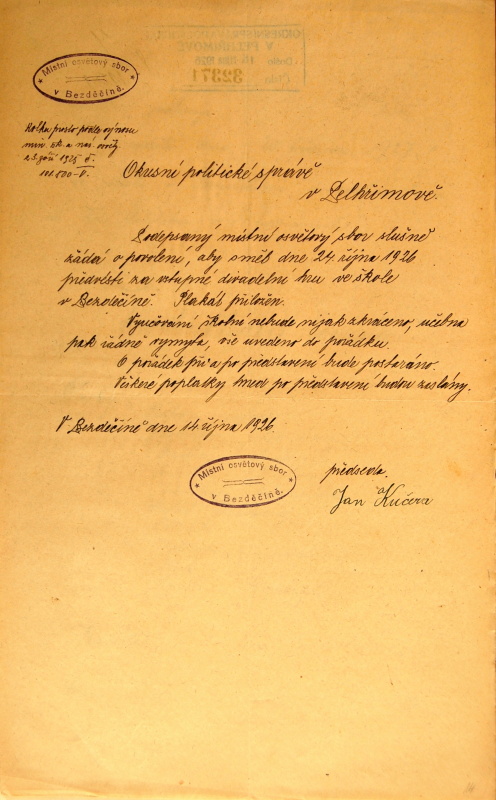 Místní osvětový sbor
v Bezděčíně.
Kolku prosto podle výnosu
min. šk. a nár. osvěty
z 3. září 1925 č.
111.800-V.
OKRESNÍ SPRÁVA POLITICKÁ
V PELHŘIMOVĚ
Došlo 1926
Číslo 32371
Okresní politické správě
v Pelhřimově.
Podepsaný místní osvětový sbor slušně
žádá o povolení, aby směl dne 24. října 1926
předvésti za vstupné divadelní hru ve škole
v Bezděčíně. Plakát přiložen.
Vyučování školní nebude nijak zkráceno, učebna
pak řádně vymyta, vše uvedeno do pořádku.
O pořádek při a po představení bude postaráno.
Veškeré poplatky hned po představení budou zaslány.
V Bezděčíně dne 14. října 1926.
Místní osvětový sbor
v Bezděčíně.
předseda.
Jan Kučera